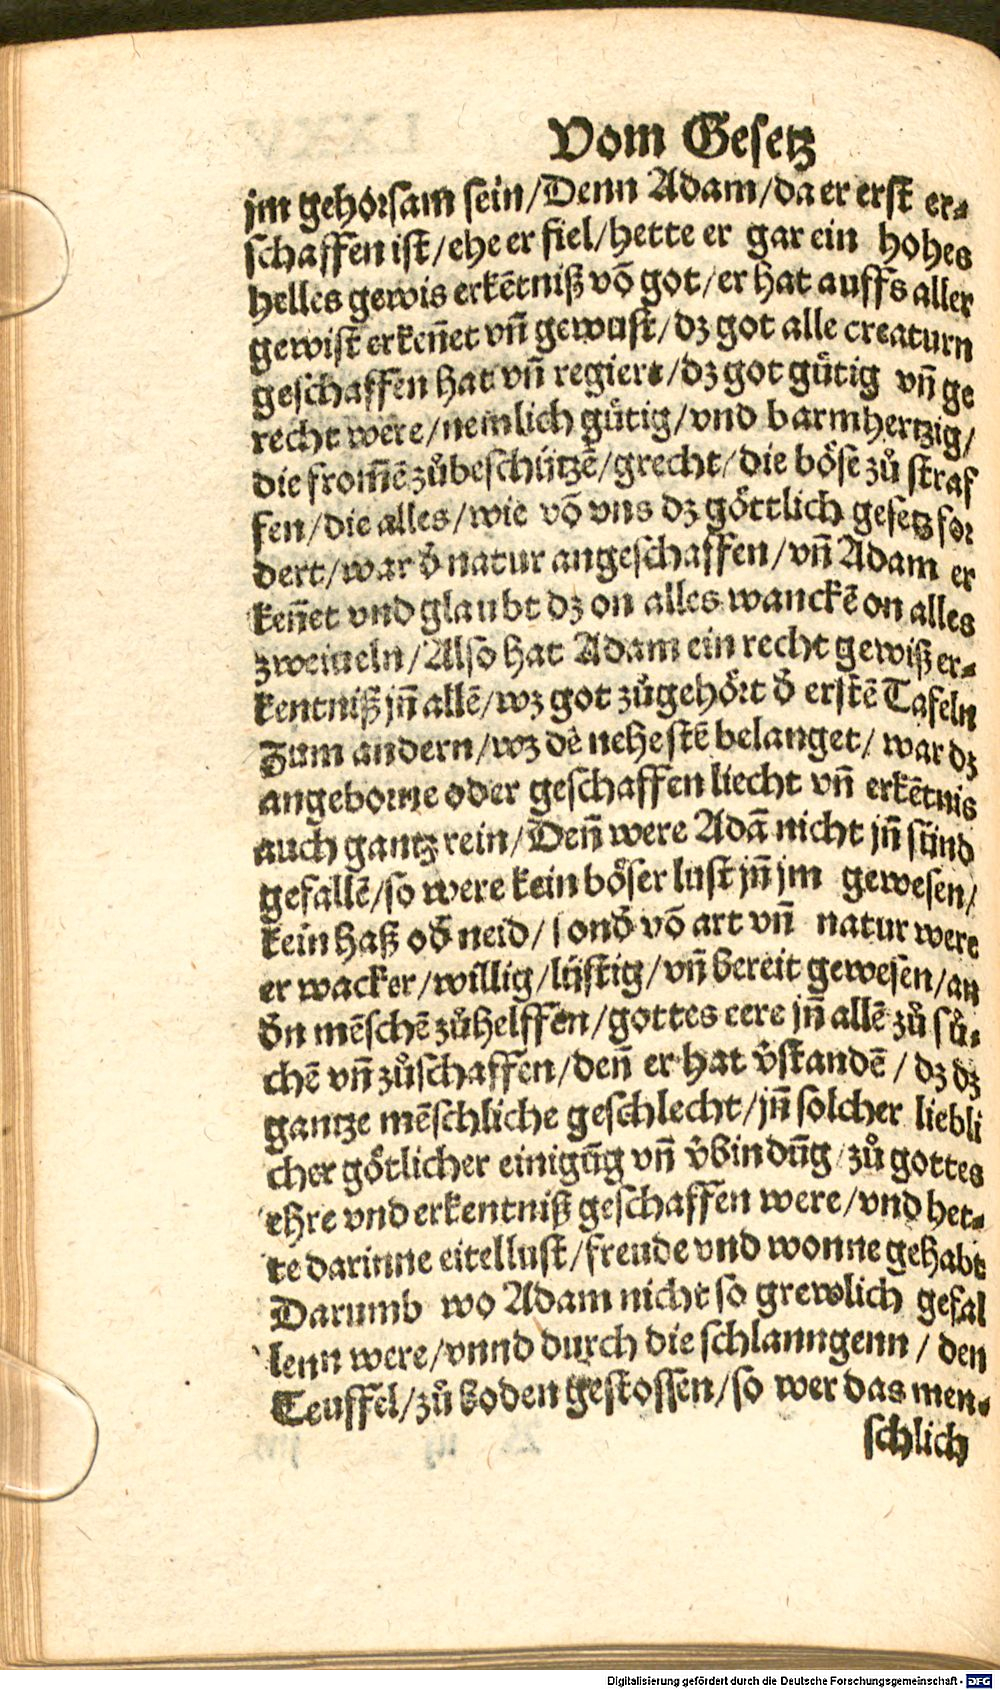 Vom Gesetz
jm gehorsam sein/Denn Adam/da er erst er⸗
schaffen ist/ehe er fiel/hette er gar ein hohes
helles gewis erkētniß vō got/er hat auffs aller
gewist erkeñet vñ gewust/dz got alle creaturn
geschaffen hat vñ regiert/dz got gůtig vñ ge
recht were/nemlich gůtig/vnd barmhertzig/
die from̄ē zůbeschützē/grecht/die böse zů straf
fen/die alles/wie vō vns dz göttlich gesetz for
dert/war d̄ natur angeschaffen/vñ Adam er
keñet vnd glaubt dz on alles wanckē on alles
zweiueln/Also hat Adam ein recht gewiß er⸗
kentniß jñ allē/wz got zůgehört d̄ erstē Tafeln
Zum andern/wz dē nehestē belanget/war dz
angeborne oder geschaffen liecht vñ erkētnis
auch gantz rein/Deñ were Adā nicht jñ sünd
gefallē/so were kein böser lust jñ jm gewesen/
kein haß od̄ neid/sond̄ vō art vñ natur were
er wacker/willig/lüstig/vñ bereit gewesen/an
d̄n mēschē zůhelffen/gottes eere jñ allē zů sů⸗
chē vñ zůschaffen/deñ er hat v̄standē/dz dz
gantze mēschliche geschlecht/jñ solcher liebli
cher götlicher einigūg vñ v̄bindūg/zů gottes
ehre vnd erkentniß geschaffen were/vnd het⸗
te darinne eitel lust/freude vnd wonne gehabt
Darumb wo Adam nicht so grewlich gefal
lenn were/vnnd durch die schlanngenn/den
Teuffel/zů boden gestossen/so wer das men⸗
schlich
Digitalisierung gefördert durch die Deutsche Forschungsgemeinschaft - DFG